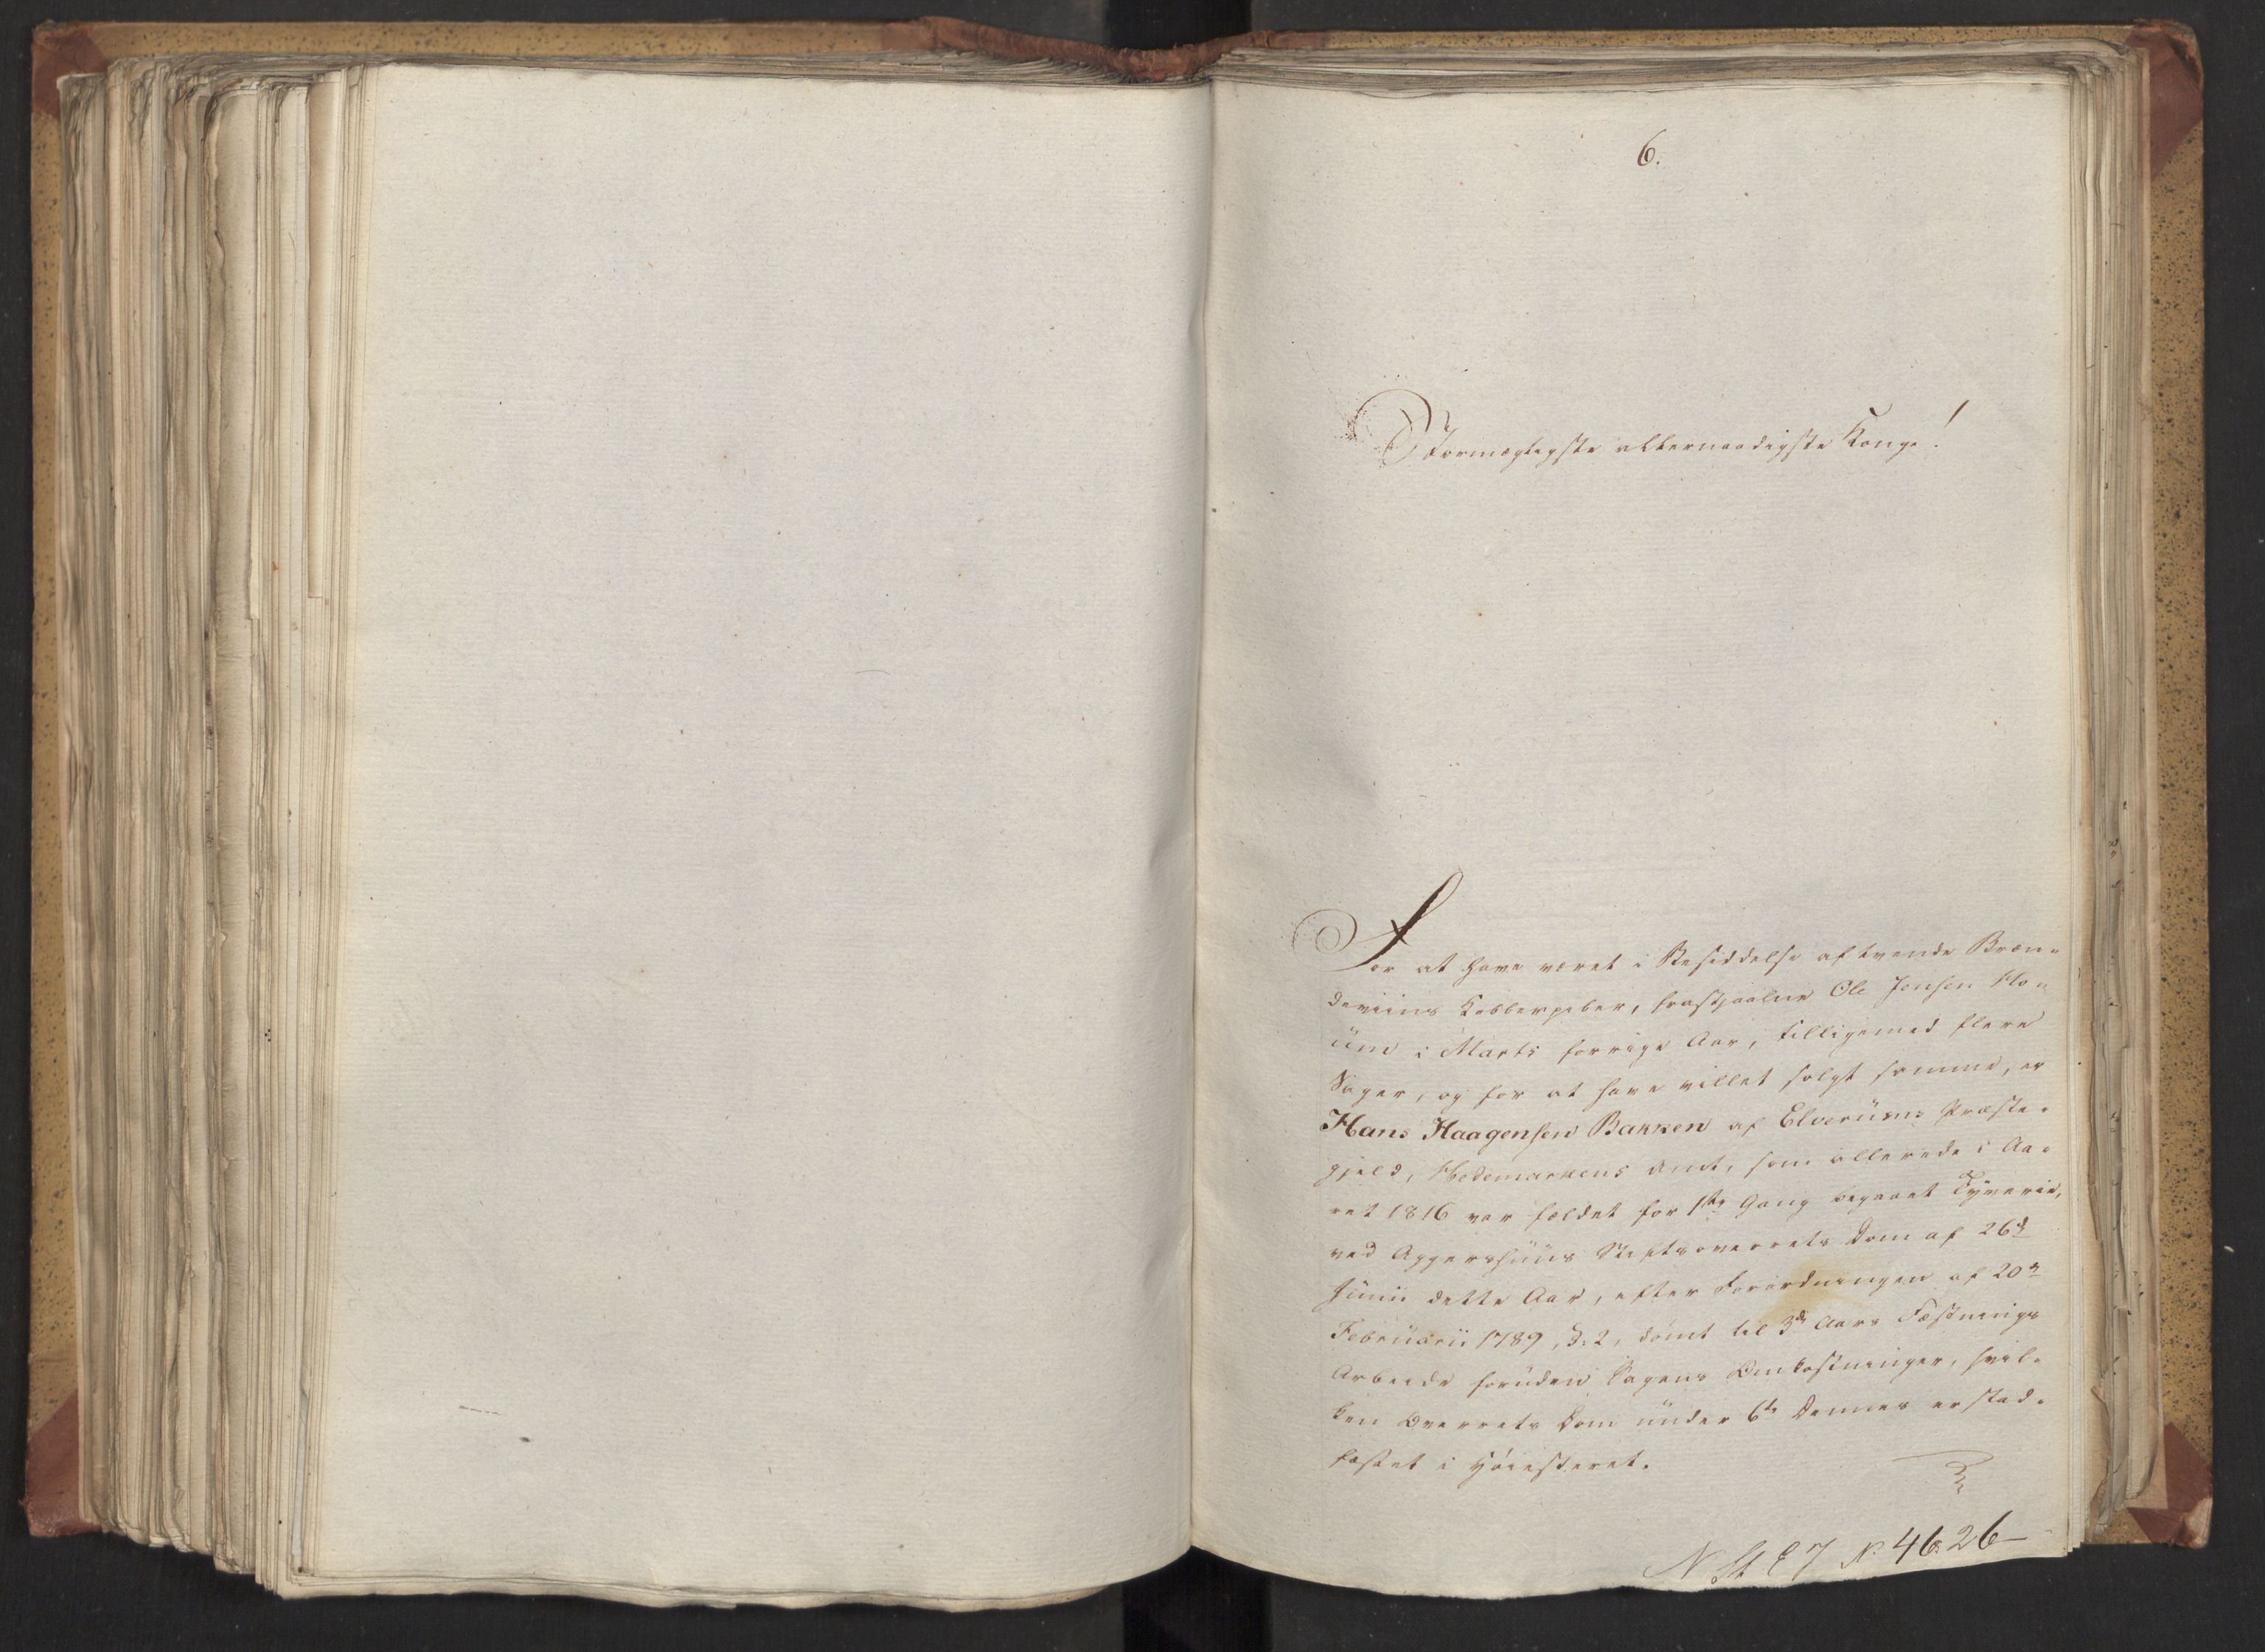 6.
Stormægtigste allernaadigste Konge!
For at have været i Besiddelse af tvende Bræn-
deviins Kobberpiber, frastjaalne Ole Jensen Ho-
üm i Marts forrige Aar, tilligemed flere
Sager, og for at have villet solgt samme, er
Hans Haagensen Bakken af Elverüms Præste-
gjeld, Hedemarkens Amt, som allerede i Aa-
ret 1816 var fældet for 1ste Gang begaaet Tyverie,
ved Aggershüüs Stiftsoverrets Dom af 26d
Junii dette Aar, efter Forordningen af 20n
Februarii 1789, §. 2, dömt til 3de Aars Fæstnings
Arbeide forüden Sagens Omkostninger, hvil-
ken Overrets Dom ünder 6te Dennes er stad-
fæstet i Höiesteret.
N. St E 7 No. 4626